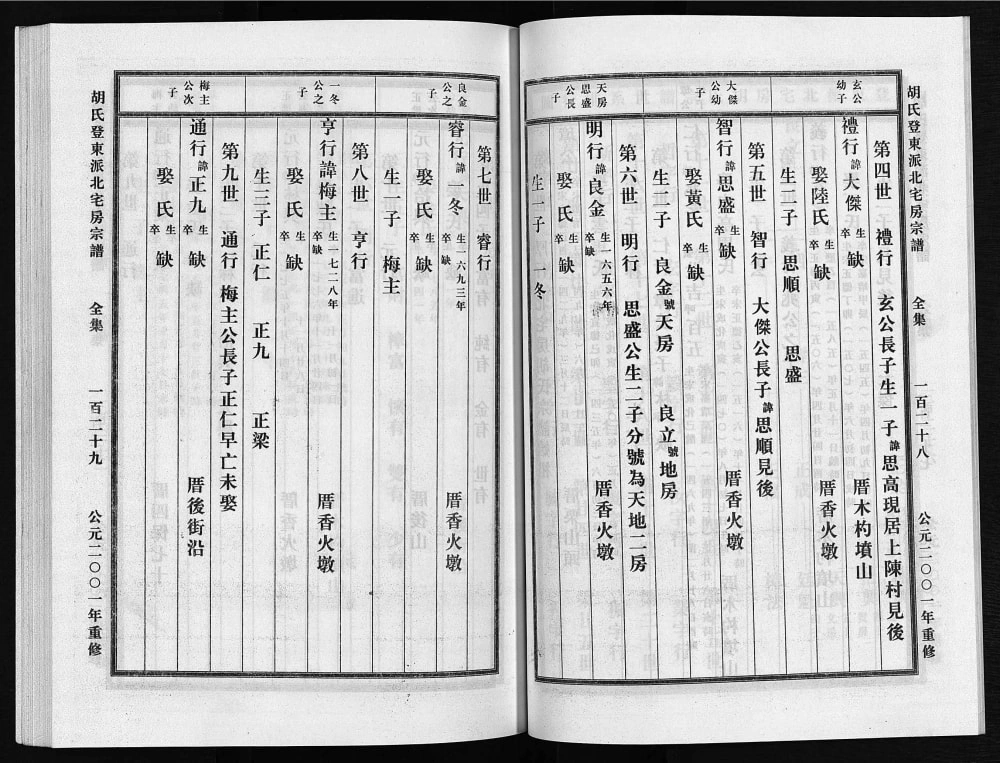 胡氏登東派北宅房宗譜 全集 一百二十八 公元二〇〇一年重修
第四世 禮行 玄公長子生一子諱思高現居上陳村見後
玄公幼子
禮行諱大傑生卒缺 厝木杓墳山
娶陸氏生卒缺 厝香火墩
生二子 思順 思盛
第五世 智行 大傑公長子諱思順見後
大傑公幼子
智行諱思盛生卒缺 厝香火墩
娶黃氏生卒缺
生二子 良金號天房 良立號地房
第六世 明行 思盛公生二子分號為天地二房
天房思盛公長子
明行諱良金生一六五六年卒缺 厝香火墩
娶 氏生卒缺
生一子 一冬
第七世 睿行
良金公之子
睿行諱一冬生一六九三年卒缺 厝香火墩
娶 氏生卒缺
生一子 梅主
第八世 亨行
一冬公之子
亨行諱梅主生一七二八年卒缺 厝香火墩
娶 氏生卒缺
生三子 正仁 正九 正梁
第九世 通行 梅主公長子正仁早亡未娶
梅主公次子
通行諱正九生卒缺 厝後街沿
娶 氏生卒缺
胡氏登東派北宅房宗譜 全集 一百二十九 公元二〇〇一年重修